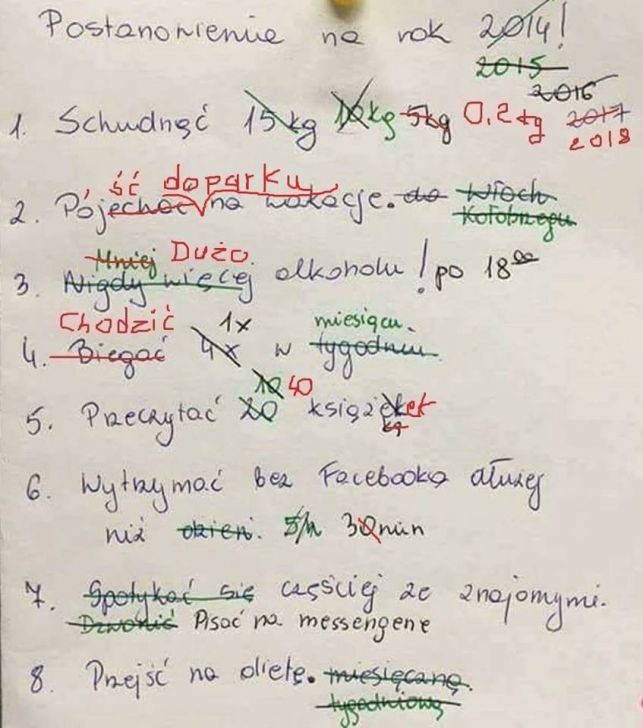 Postanowienie na rok 2014!
2015
2016
1. Schudnąć 15kg 10kg 5kg 0,2kg 2017
2018
ść doparku
2. Pójechać na wakacje. do Włoch
Kołobrzegu
Mniej Dużo
3. Nigdy więcej alkoholu! po 18⁰⁰
Chodzić 1x miesiącu.
4. Biegać 4x w tygodniu
10 40
5. Przeczytać 20 książek
6. Wytrzymać bez Facebooka dłużej
niż dzień. 5h 30min
7. Spotykać się częściej ze znajomymi.
Dzwonić Pisać na messengerze
8. Przejść na dietę. miesięczną.
tygodniową